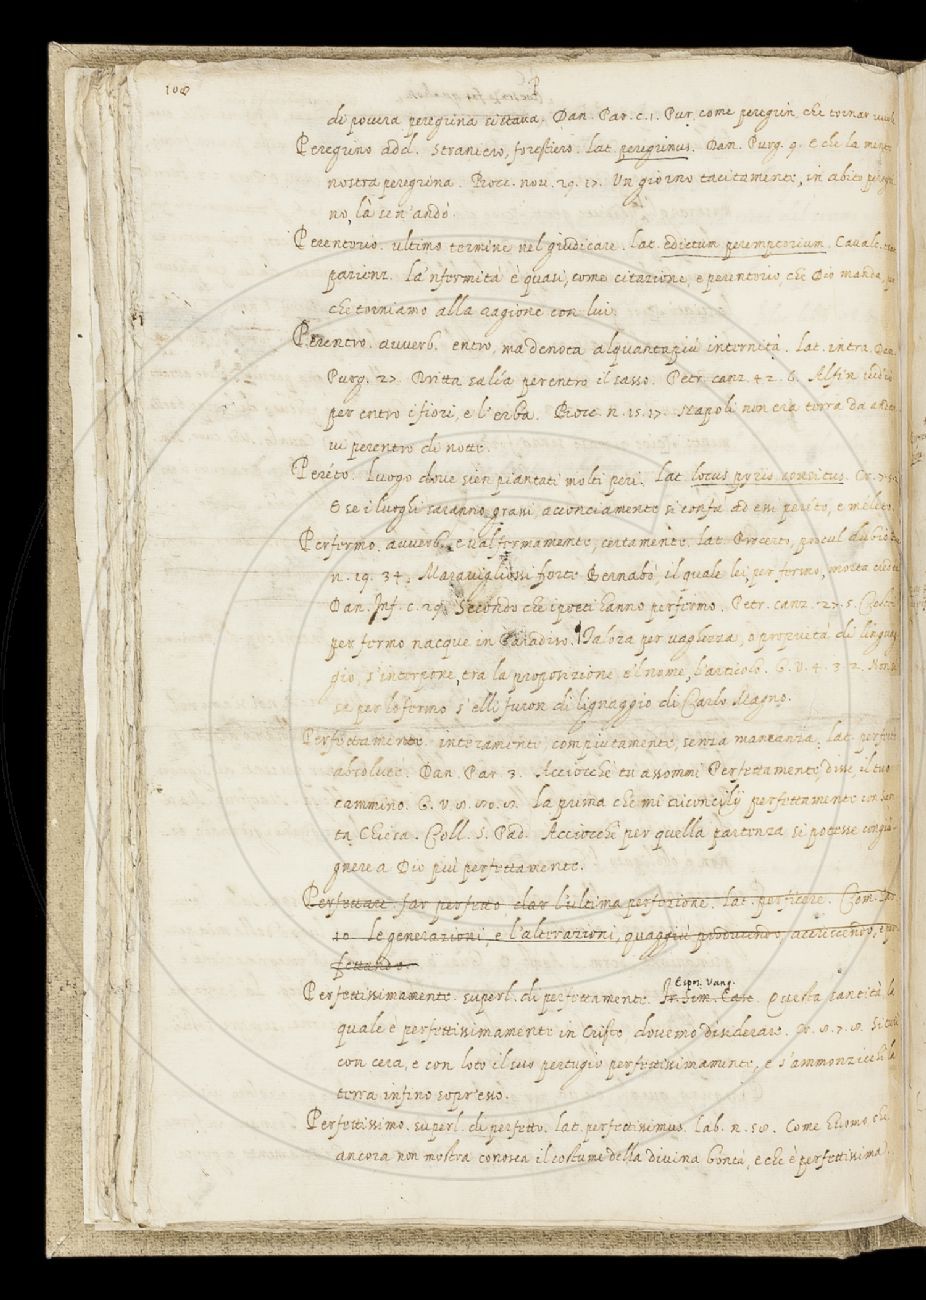 108
P
di povera peregrina vittava. Dan. Par. c. 1. Pur, come peregrin, che tornar vuole
Peregrino add. straniero, forestiero. lat. peregrinus. Dan. Purg. 9. E che la mente
nostra peregrina. Bocc. nov. 29. 17. Un giorno tacitamente, in abito peregri
no, là sen'andò.
Perentorio. ultimo termine nel giudicare. lat. edictum peremptorium. Cavalc.
pazienz. La 'nfermità è quasi, come citazione, e perentorio, che Dio manda,
che torniamo alla ragione con lui.
Perentro. avverb. entro, ma denota alquanta più internità. lat. intra. Dan.
Purg. 27. Dritta salía perentro il sasso. Petr. canz. 42. 6. Alfin vid'io
per entro i fiori, e l'erba. Bocc. n. 15. 17. Napoli non era terra da andar
vi perentro di notte.
Peréto. Luogo dove sien piantati molti peri. lat. locus pyris consitus. Cr.
O se i luoghi saranno grassi, acconciamente si confà ad essi peréto, e meleto.
Perfermo. avverb. e val fermamente, certamente. lat. Procerto, procul dubio.
n. 29. 34. Maravigliossi forte Bernabò, il quale lei per fermo, morta
Dan. Inf. c. 29. Secondo che i poeti hanno perfermo. Petr. canz. 27. 5. Costei
per fermo nacque in Paradiso. Talora per vaghezza, o proprietà di linguag
gio, s'interpone, tra la proposizione, e'l nome, l'articolo. G. V. 4. 3. 2. Non si
sa per lo fermo s'elli furon di lignaggio di Carlo Magno.
Perfettamente. interamente, compiutamente, senza mancanza. lat. perfecte
absolute. Dan. Par. 3. Acciocchè tu assommi Perfettamente, disse, il tuo
cammino. G. V. 8. 80. 8. La prima che mi riconcilij perfettamente con San
ta Chiesa. Coll. S. Pad. Acciocchè per quella partenza si potesse congiu
gnere a Dio più perfettamente.
Perfettare. far perfetto, dar l'ultima perfezione. lat. perficere. Com.
10. Le generazioni, e l'alterazioni, quaggiù producendo, accrescendo, e per
fettando.
Espo. Vang.
Perfettissimamente. superl. di perfettamente. Questa santità, la
quale è perfettissimamente in Cristo dovemo disiderare.
con cera, e con loto il suo pertugio perfettissimamente, e s'ammonzicchi la
terra infino sopr'esso.
Perfettissimo. superl. di perfetto. lat. perfectissimus. Lab. n. 58. Come huomo che
ancora non mostra conosca il costume della divina bontà, e che è perfettissima